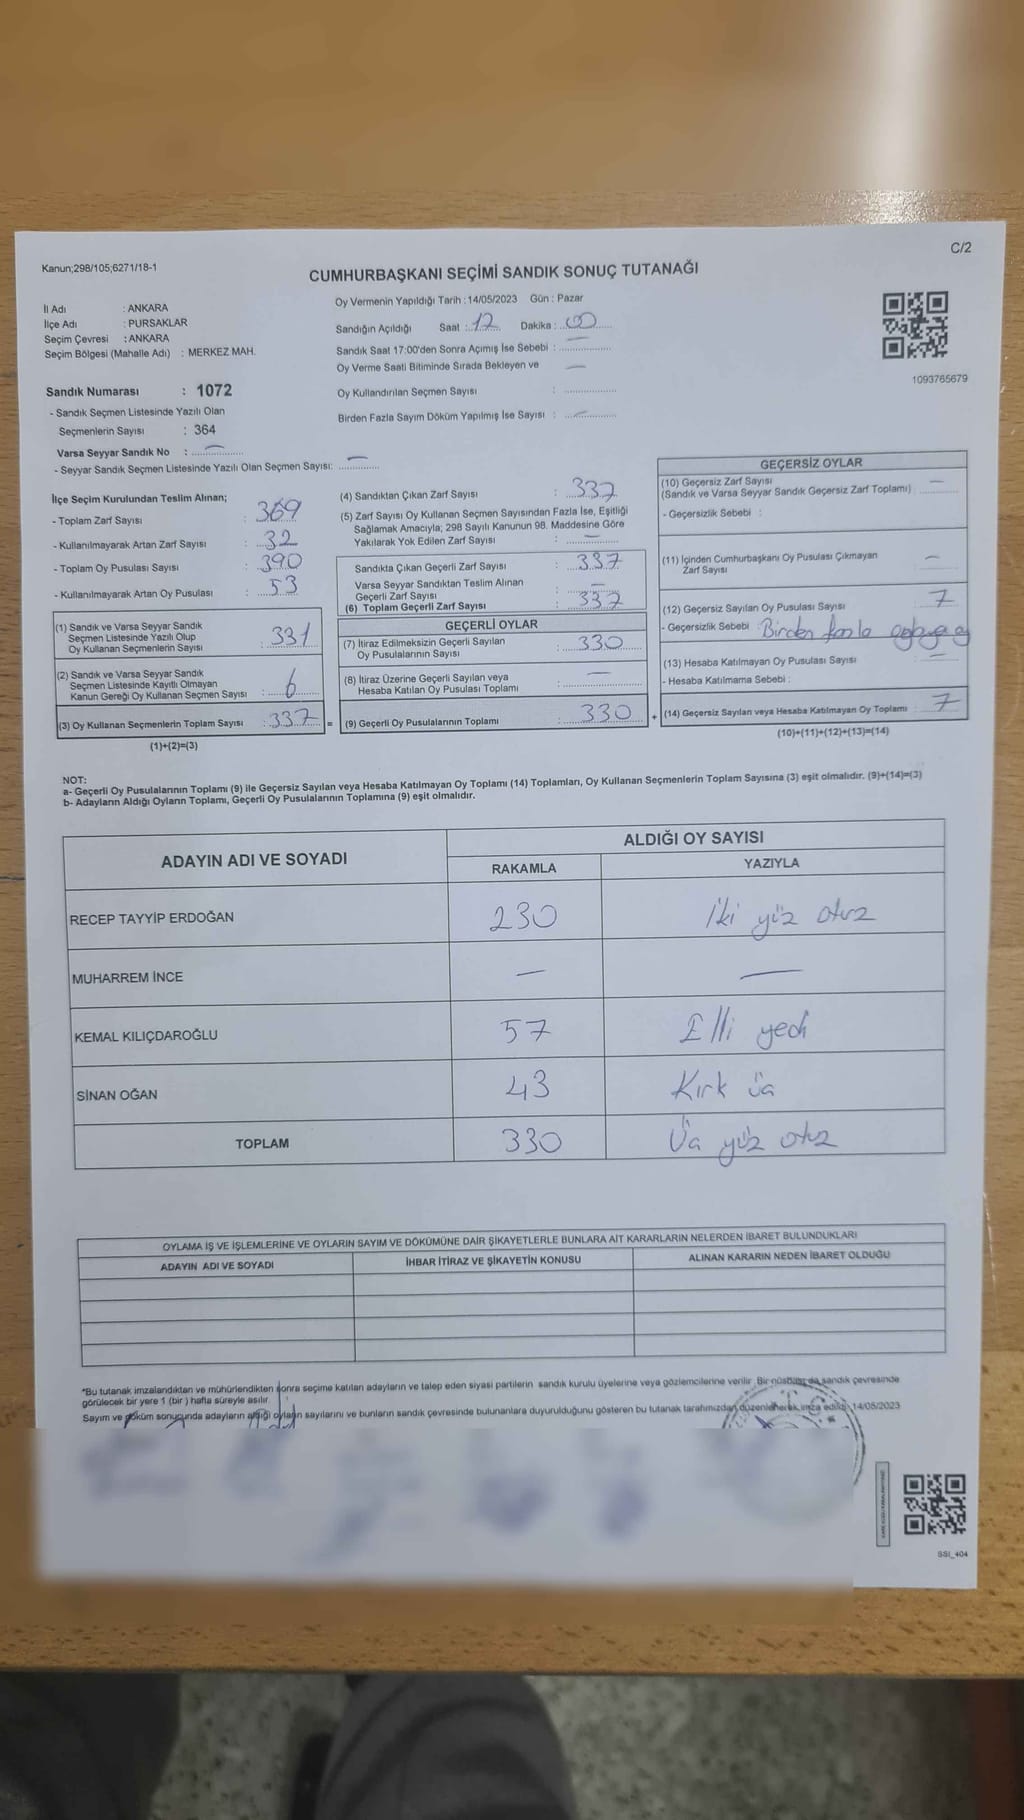 C/2
Kanun;298/105;6271/18-1
CUMHURBAŞKANI SEÇİMİ SANDIK SONUÇ TUTANAĞI
İl Adı : ANKARA
İlçe Adı : PURSAKLAR
Seçim Çevresi : ANKARA
Seçim Bölgesi (Mahalle Adı) : MERKEZ MAH.
Sandık Numarası : 1072
- Sandık Seçmen Listesinde Yazılı Olan
Seçmenlerin Sayısı : 364
Varsa Seyyar Sandık No : —
- Seyyar Sandık Seçmen Listesinde Yazılı Olan Seçmen Sayısı: —
Oy Vermenin Yapıldığı Tarih : 14/05/2023 Gün : Pazar
Sandığın Açıldığı Saat : 17 Dakika : 00
Sandık Saat 17:00'den Sonra Açımış İse Sebebi : —
Oy Verme Saati Bitiminde Sırada Bekleyen ve —
Oy Kullandırılan Seçmen Sayısı :
Birden Fazla Sayım Döküm Yapılmış İse Sayısı : —
1093765679
İlçe Seçim Kurulundan Teslim Alınan;
- Toplam Zarf Sayısı : 369
- Kullanılmayarak Artan Zarf Sayısı : 32
- Toplam Oy Pusulası Sayısı : 390
- Kullanılmayarak Artan Oy Pusulası : 53
(1) Sandık ve Varsa Seyyar Sandık
Seçmen Listesinde Yazılı Olup
Oy Kullanan Seçmenlerin Sayısı : 331
(2) Sandık ve Varsa Seyyar Sandık
Seçmen Listesinde Kayıtlı Olmayan
Kanun Gereği Oy Kullanan Seçmen Sayısı : 6
(3) Oy Kullanan Seçmenlerin Toplam Sayısı : 337 =
(1)+(2)=(3)
(4) Sandıktan Çıkan Zarf Sayısı : 337
(5) Zarf Sayısı Oy Kullanan Seçmen Sayısından Fazla İse, Eşitliği
Sağlamak Amacıyla; 298 Sayılı Kanunun 98. Maddesine Göre
Yakılarak Yok Edilen Zarf Sayısı : —
Sandıkta Çıkan Geçerli Zarf Sayısı : 337
Varsa Seyyar Sandıktan Teslim Alınan
Geçerli Zarf Sayısı : —
(6) Toplam Geçerli Zarf Sayısı : 337
GEÇERLİ OYLAR
(7) İtiraz Edilmeksizin Geçerli Sayılan
Oy Pusulalarının Sayısı : 330
(8) İtiraz Üzerine Geçerli Sayılan veya
Hesaba Katılan Oy Pusulası Toplamı : —
(9) Geçerli Oy Pusulalarının Toplamı : 330 +
GEÇERSİZ OYLAR
(10) Geçersiz Zarf Sayısı
(Sandık ve Varsa Seyyar Sandık Geçersiz Zarf Toplamı) —
- Geçersizlik Sebebi :
(11) İçinden Cumhurbaşkanı Oy Pusulası Çıkmayan
Zarf Sayısı —
(12) Geçersiz Sayılan Oy Pusulası Sayısı 7
- Geçersizlik Sebebi : Birden fazla
(13) Hesaba Katılmayan Oy Pusulası Sayısı —
- Hesaba Katılmama Sebebi :
(14) Geçersiz Sayılan veya Hesaba Katılmayan Oy Toplamı : 7
(10)+(11)+(12)+(13)=(14)
NOT:
a- Geçerli Oy Pusulalarının Toplamı (9) ile Geçersiz Sayılan veya Hesaba Katılmayan Oy Toplamı (14) Toplamları, Oy Kullanan Seçmenlerin Toplam Sayısına (3) eşit olmalıdır. (9)+(14)=(3)
b- Adayların Aldığı Oyların Toplamı, Geçerli Oy Pusulalarının Toplamına (9) eşit olmalıdır.
ADAYIN ADI VE SOYADI ALDIĞI OY SAYISI
RAKAMLA YAZIYLA
RECEP TAYYİP ERDOĞAN 230 İki yüz otuz
MUHARREM İNCE — —
KEMAL KILIÇDAROĞLU 57 Elli yedi
SİNAN OĞAN 43 Kırk üç
TOPLAM 330 Üç yüz otuz
OYLAMA İŞ VE İŞLEMLERİNE VE OYLARIN SAYIM VE DÖKÜMÜNE DAİR ŞİKAYETLERLE BUNLARA AİT KARARLARIN NELERDEN İBARET BULUNDUKLARI
ADAYIN ADI VE SOYADI İHBAR İTİRAZ VE ŞİKAYETİN KONUSU ALINAN KARARIN NEDEN İBARET OLDUĞU
*Bu tutanak imzalandıktan ve mühürlendikten sonra seçime katılan adayların ve talep eden siyasi partilerin sandık kurulu üyelerine veya gözlemcilerine verilir. Bir nüshası da sandık çevresinde
görülecek bir yere 1 (bir ) hafta süreyle asılır.
Sayım ve döküm sonucunda adayların aldığı oyların sayılarını ve bunların sandık çevresinde bulunanlara duyurulduğunu gösteren bu tutanak tarafımızdan düzenlenerek imza edildi. 14/05/2023
SSI_404